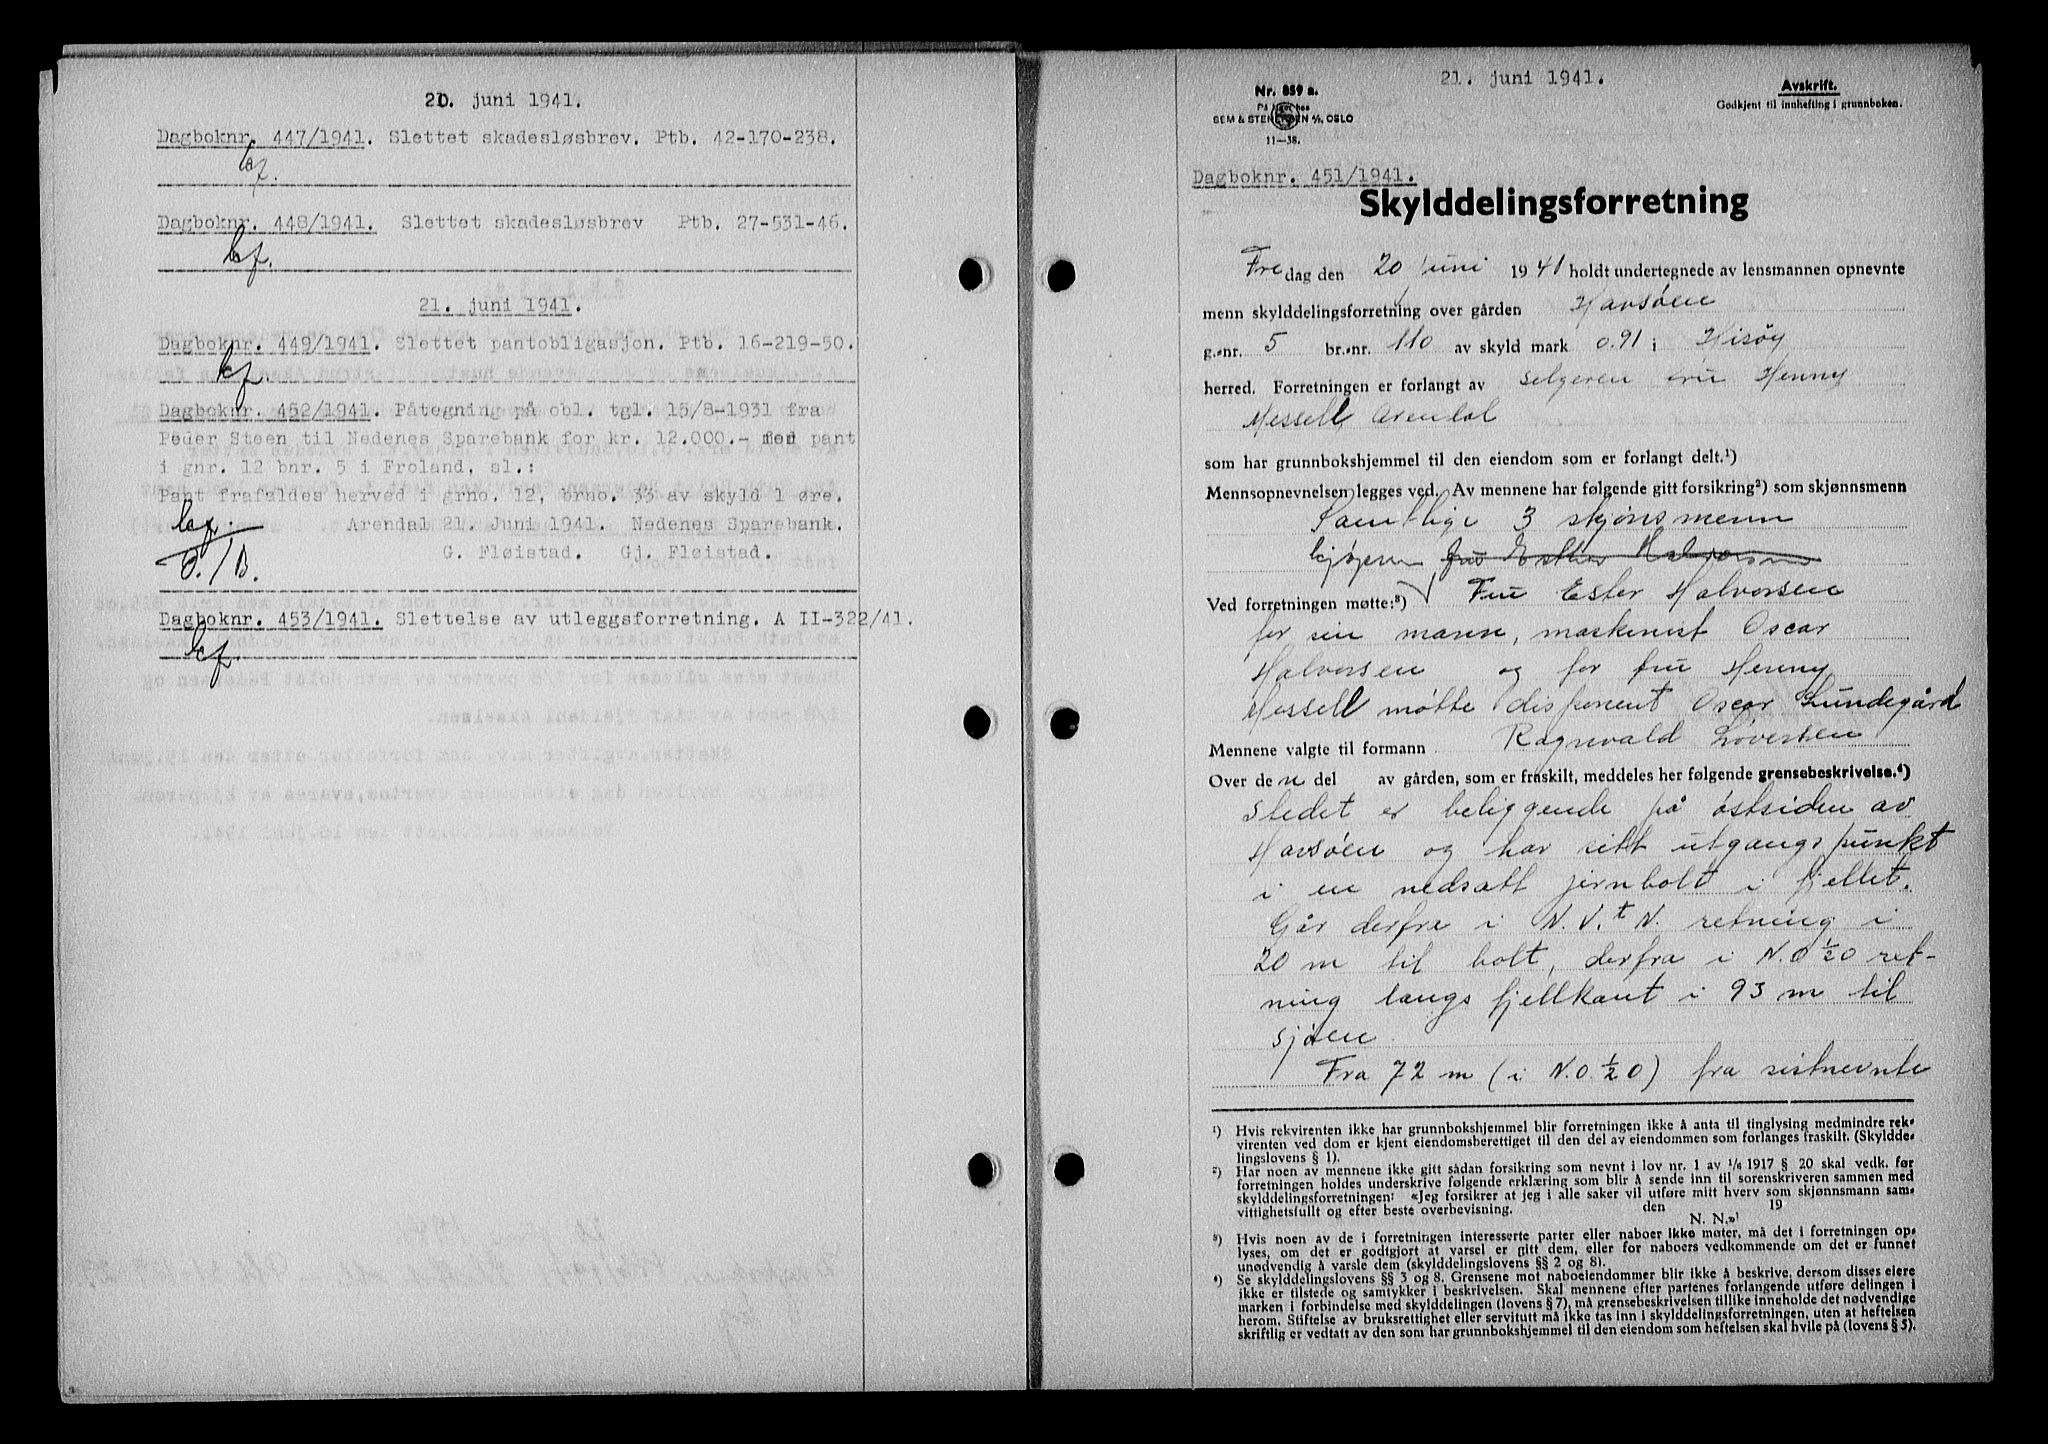 20. juni 1941.
Dagboknr. 447/1941. Slettet skadesløsbrev. Ptb. 42-170-238.
Dagboknr. 448/1941. Slettet skadesløsbrev Ptb. 27-531-46.
21. juni 1941.
Dagboknr. 449/1941. Slettet pantobligasjon. Ptb. 16-219-50.
Dagboknr. 452/1941. Påtegning på obl. tgl. 15/8-1931 fra
Peder Steen til Nedenes Sparebank for kr. 12.000.- med pant
i gnr. 12 bnr. 5 i Froland, sl.:
Pant frafaldes herved i grno. 12, brno. 33 av skyld 1 øre.
Arendal 21. Juni 1941. Nedenes Sparebank.
G. Fløistad. Gj. Fløistad.
Dagboknr. 453/1941. Slettelse av utleggsforretning. A II-322/41.
21. juni 1941.
Nr. 859 a.
SEM & STENERSEN A/S, OSLO
11—38.
Avskrift.
Godkjent til innhefting i grunnboken.
Dagboknr. 451/1941.
Skylddelingsforretning
Fredag den 20 juni 1941 holdt undertegnede av lensmannen opnevnte
menn skylddelingsforretning over gården Havsøen
g.-nr. 5 br.-nr. 110 av skyld mark 0.91 i Hisøy
herred. Forretningen er forlangt av selgeren fru Henny
Messell, Arendal
som har grunnbokshjemmel til den eiendom som er forlangt delt.¹)
Mennsopnevnelsen legges ved. Av mennene har følgende gitt forsikring²) som skjønnsmenn
Samtlige 3 skjønsmenn
kjøperen fru Esther Halvorsen
Ved forretningen møtte:³) Fru Ester Halvorsen
for sin mann, maskinist Oscar
Halvorsen og for fru Henny
Messell møtte disponent Oscar Lundegård
Mennene valgte til formann Ragnvald Løversen
Over den del av gården, som er fraskilt, meddeles her følgende grensebeskrivelse.⁴)
Stedet er beliggende på østsiden av
Havsøen og har sitt utgangspunkt
i en nedsatt jernbolt i fjellet.
Går derfra i N.V.t N. retning i
20 m til bolt, derfra i N.O ½ O ret-
ning langs fjellkant i 93 m til
sjøen.
Fra 72 m (i N.O. ½ O) fra sistnevnte
¹) Hvis rekvirenten ikke har grunnbokshjemmel blir forretningen ikke å anta til tinglysing medmindre rek-
virenten ved dom er kjent eiendomsberettiget til den del av eiendommen som forlanges fraskilt. (Skyldde-
lingslovens § 1).
²) Har noen av mennene ikke gitt sådan forsikring som nevnt i lov nr. 1 av 1/6 1917 § 20 skal vedk. før
forretningen holdes underskrive følgende erklæring som blir å sende inn til sorenskriveren sammen med
skylddelingsforretningen: «Jeg forsikrer at jeg i alle saker vil utføre mitt hverv som skjønnsmann sam-
vittighetsfullt og efter beste overbevisning. den 19
N. N.»
³) Hvis noen av de i forretningen interesserte parter eller naboer ikke møter, må det i forretningen op-
lyses, om det er godtgjort at varsel er gitt dem, eller for naboers vedkommende om det er funnet
unødvendig å varsle dem (skylddelingslovens §§ 2 og 8).
⁴) Se skylddelingslovens §§ 3 og 8. Grensene mot naboeiendommer blir ikke å beskrive, dersom disses eiere
ikke er tilstede og samtykker i beskrivelsen. Skal mennene efter partenes forlangende utføre delingen i
marken i forbindelse med skylddelingen (lovens § 7), må grensebeskrivelsen tillike inneholde det nødvendige
herom. Stiftelse av bruksrettighet eller servitutt må ikke tas inn i skylddelingsforretningen, uten at heftelsen
skriftlig er vedtatt av den som har grunnbokshjemmel til den eiendom som heftelsen skal hvile på (lovens § 5).